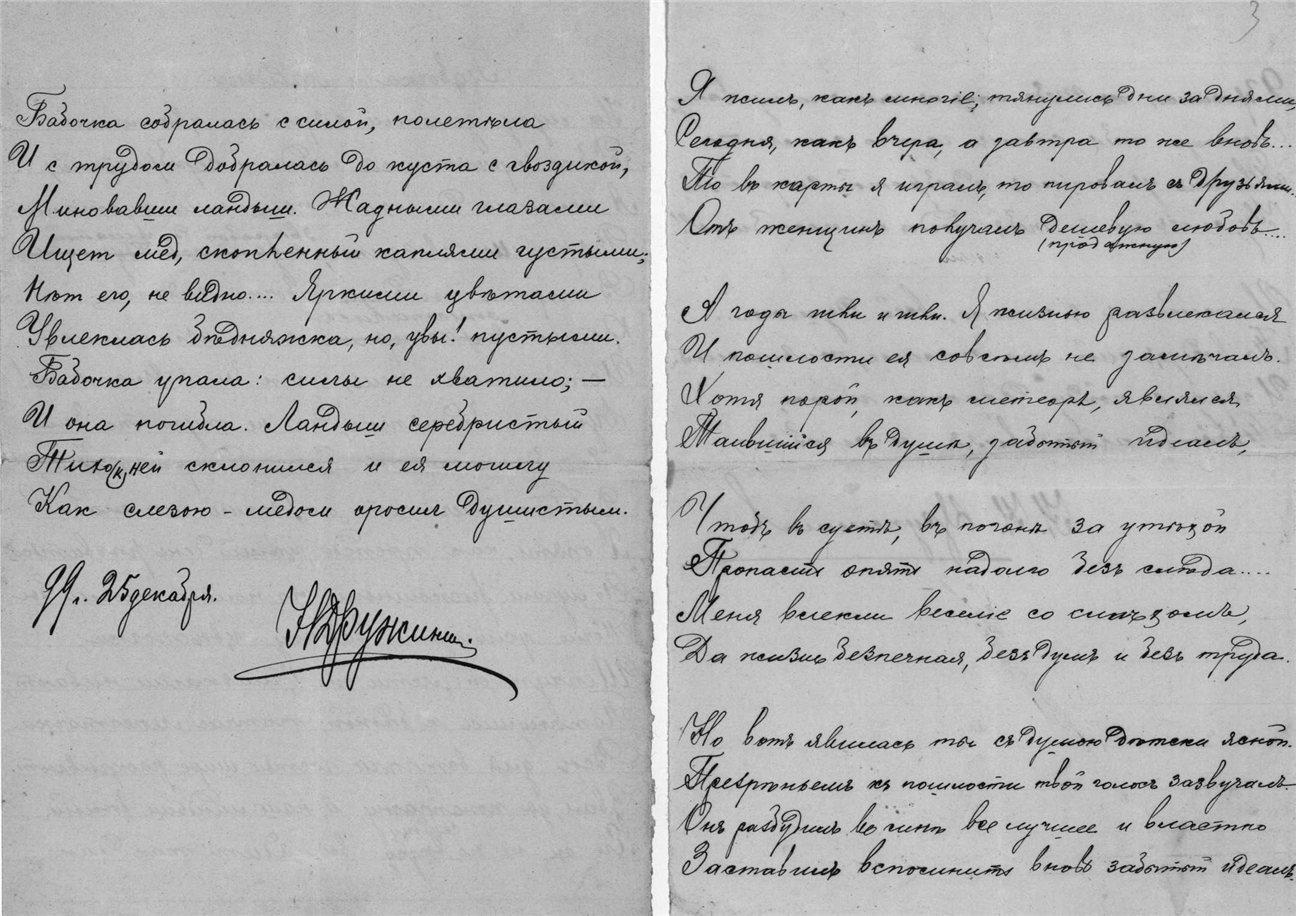 Бабочка собралась с силой, полетѣла
И с трудом добралась до куста с гвоздикой,
Миновавши ландыш. Жадными глазами
Ищет мёд, скопленный каплями густыми;
Нѣт его, не видно.... Яркими цвѣтами
Увлеклась бѣдняжка, но, увы! пустыми.
Бабочка упала: силы не хватило; —
И она погибла. Ландыш серебристый
Тихо (к) ней склонился и ея могилу
Как слезою - мёдом оросил душистым.
99 г. 25 декабря.
НДружинин
3
Я жилъ, какъ многіе; тянулись дни за днями,
Сегодня, какъ вчера, а завтра то же вновь...
То въ карты я игралъ, то пировалъ съ друзьями..
Отъ женщинъ получалъ дешевую любовь....
(продажную)
А годы шли и шли. Я жизнью развлекался
И пошлости ея совсѣмъ не замѣчалъ.
Хотя порой, какъ метеоръ, являлся
Таившійся въ душѣ, забытый идеалъ,
Чтобъ въ суетѣ, въ погонѣ за утѣхой
Пропасть опять надолго безъ слѣда....
Меня влекли веселіе со смѣхомъ,
Да жизнь безпечная, безъ думъ и безъ труда.
Но вотъ явилась ты съ душою дѣтски ясной.
Презрѣньемъ къ пошлости твой голосъ зазвучалъ.
Онъ разбудилъ во мнѣ все лучшее и властно
Заставилъ вспомнить вновь забытый идеалъ.